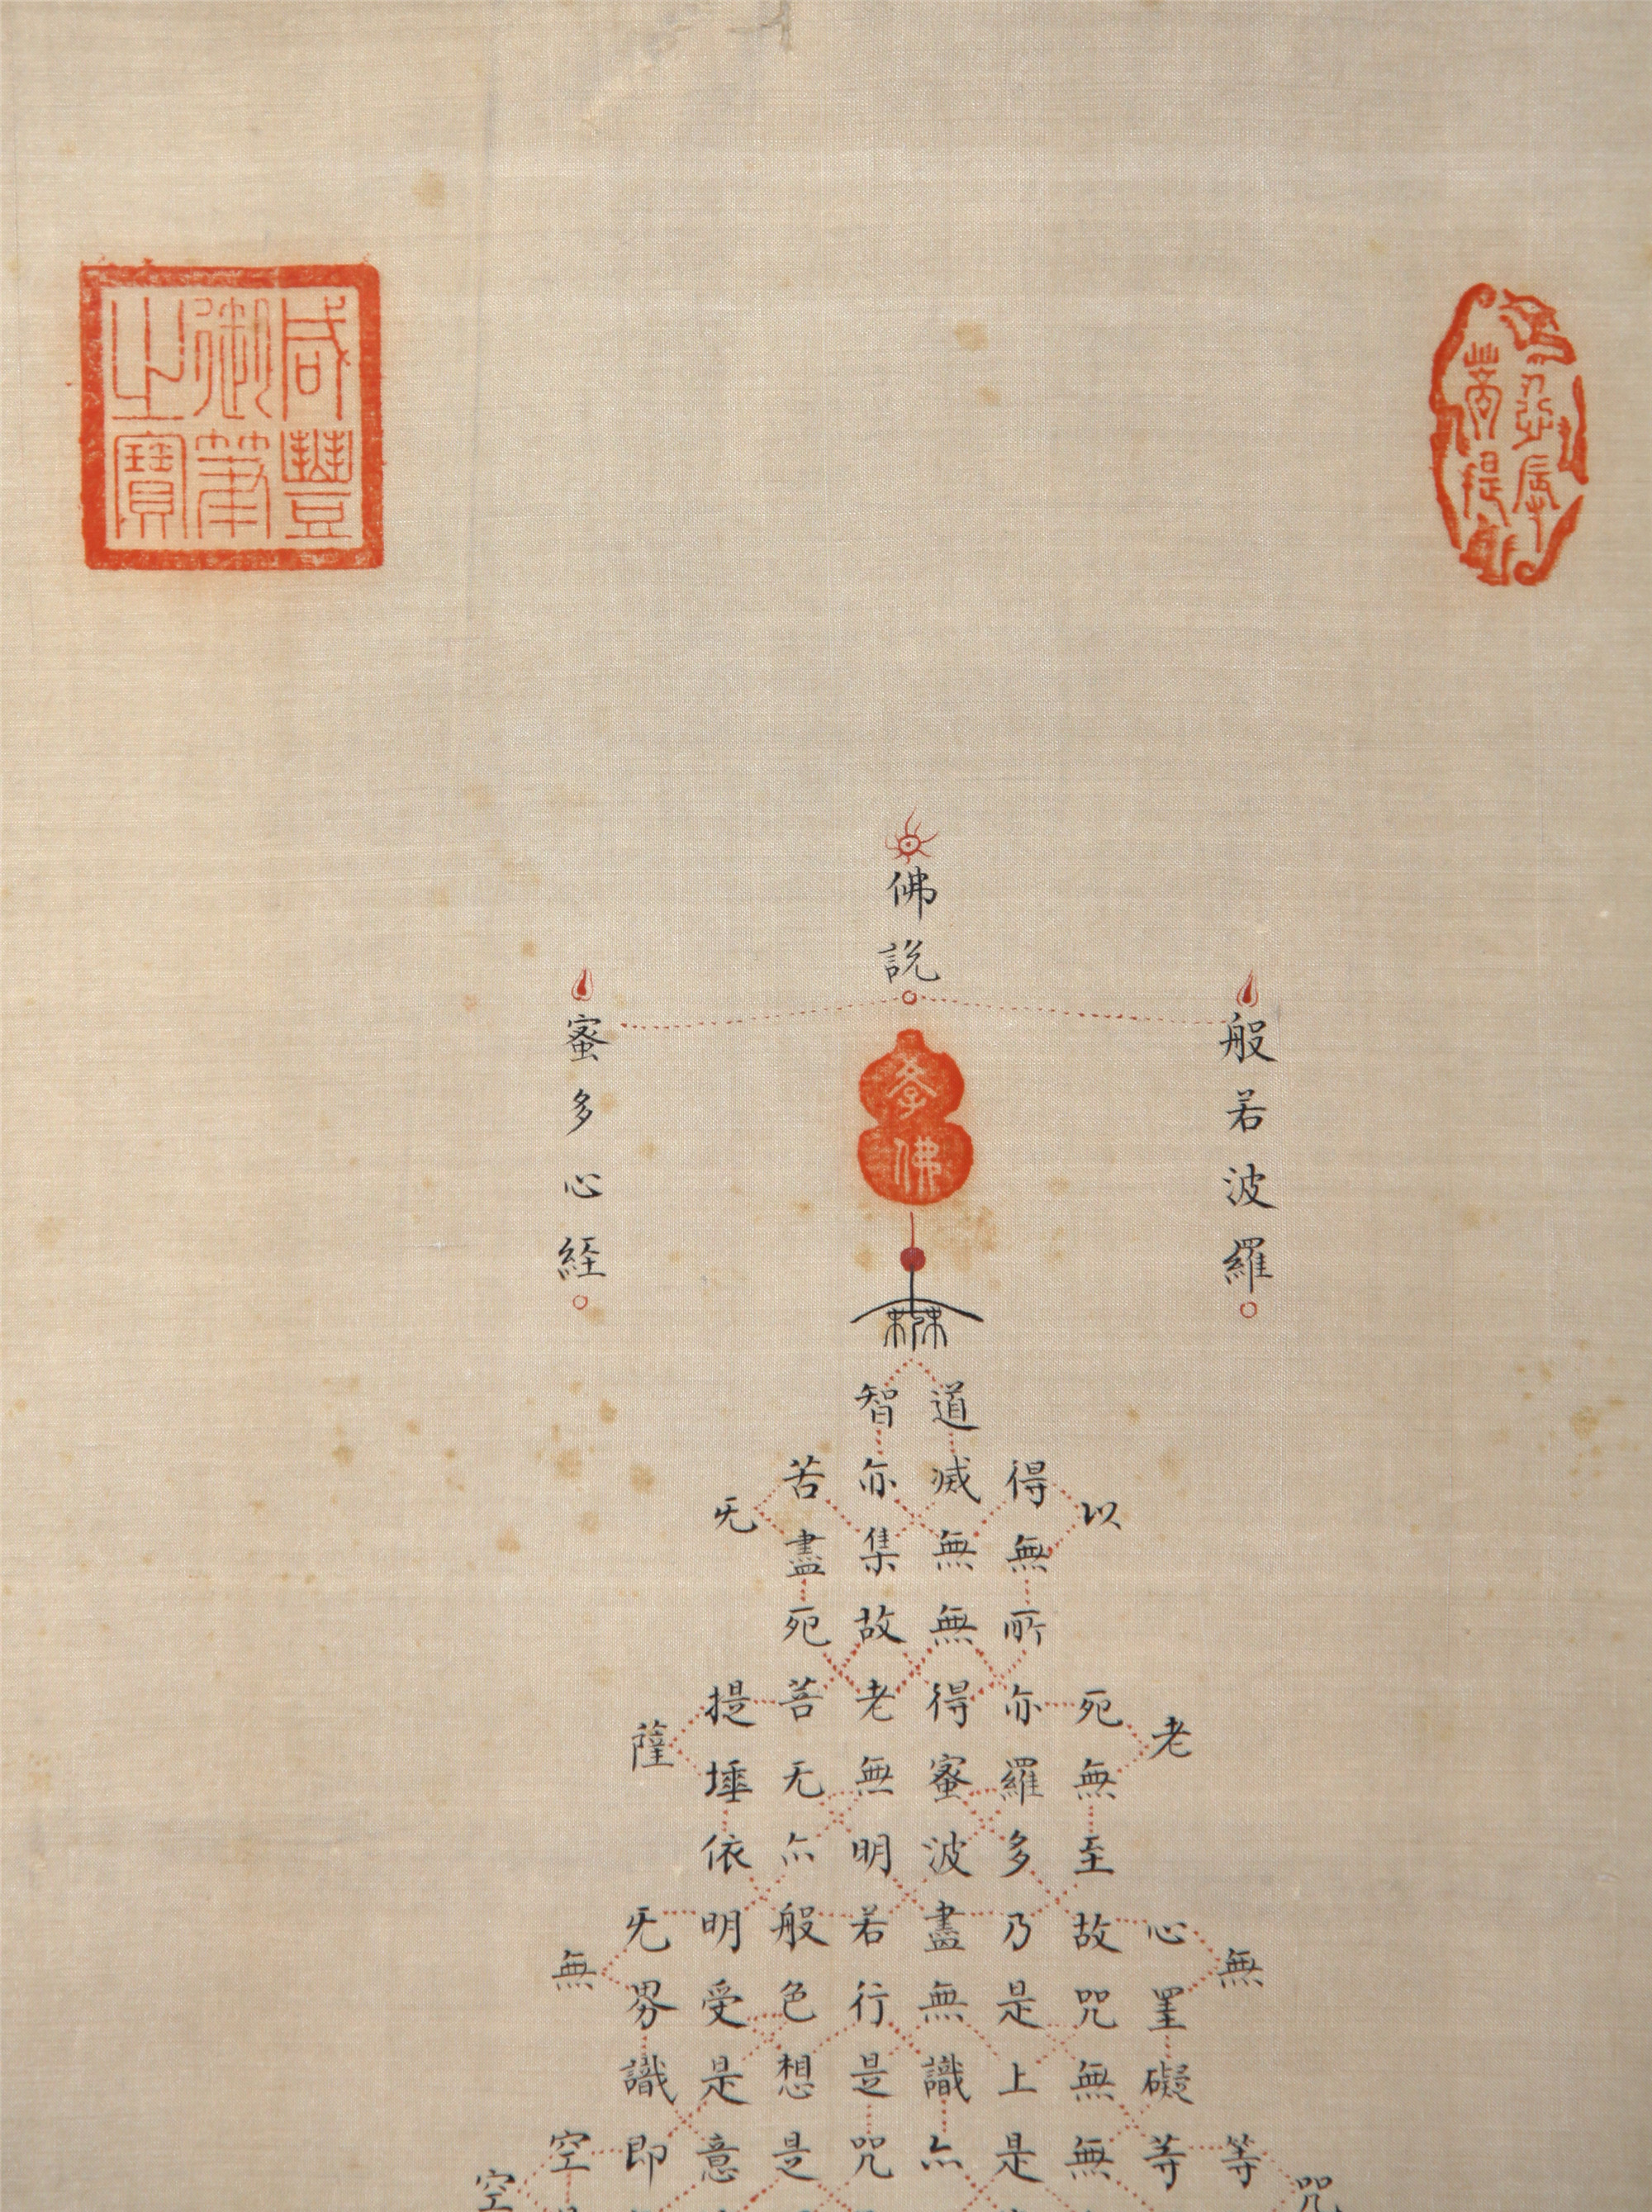 咸豐
御筆
之寶
佛說
般若波羅
蜜多心経
佛
智道
苦亦滅得
无以
盡集無無
死故無所
提菩老得亦死
薩老
埵无無蜜羅無
依亦明波多至
无明般若盡乃故心
無無
界受色行無是咒罣
識是想是識上無礙
空即意是咒亦是無等等
空咒